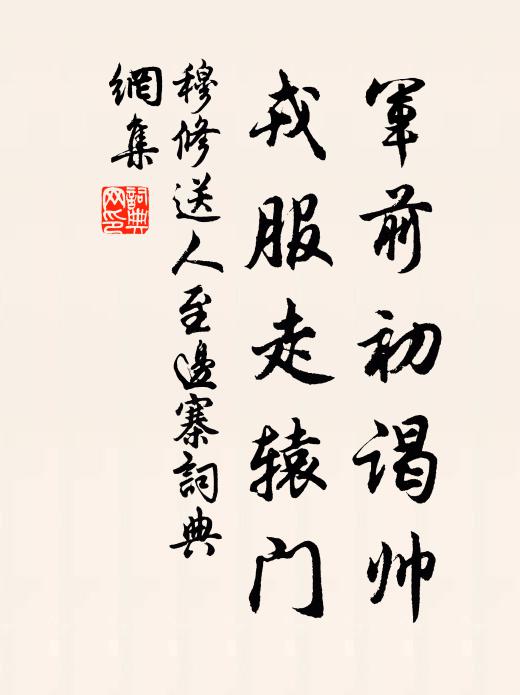 軍前初谒帅
戎服走辕门
穆修送人至邊寨詞典
網集
詞典
网印